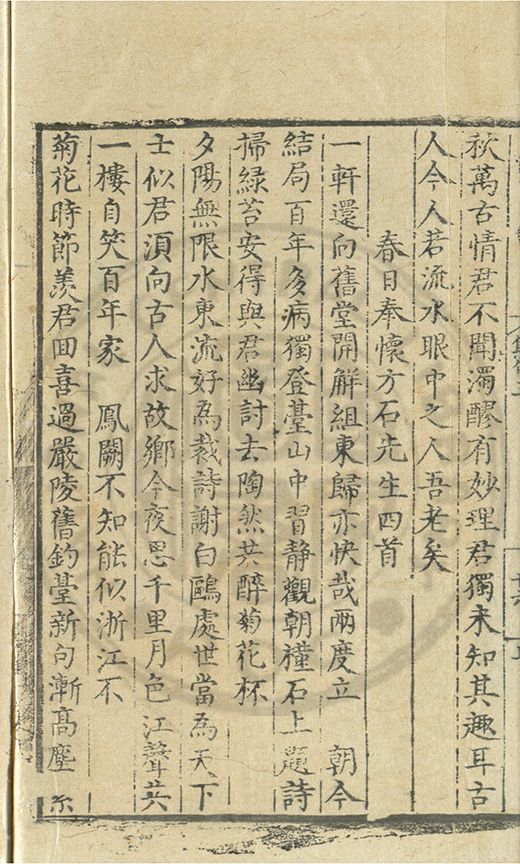 秋萬古情君不聞濁醪有妙理君獨未知其趣耳古
人今人若流水眼中之人吾老矣
春日奉懷方石先生四首
一軒還向舊堂開解組東歸亦快哉兩度立 朝今
結局百年多病獨登臺山中習静觀朝槿石上題詩
掃綠苔安得與君幽討去陶然共醉菊花杯
夕陽無限水東流好為裁詩謝白鷗處世當為天下
士似君須向古人求故鄉今夜思千里月色江聲共
一樓自笑百年家 鳳闕不知能似浙江不
菊花時節羨君回喜過嚴陵舊釣臺新向漸高塵